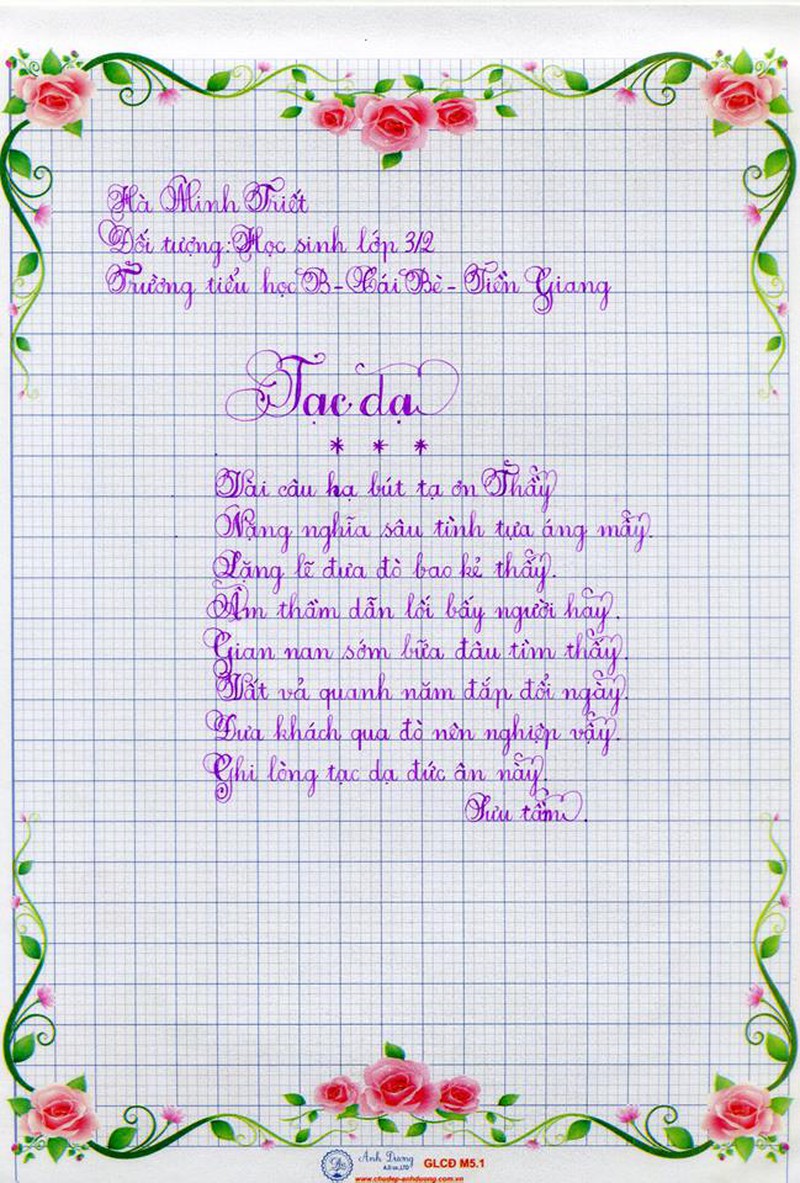 Hà Minh Triết
Đối tượng: Học sinh lớp 3/2
Trường tiểu học B - Cái Bè - Tiền Giang
Tạc dạ
* * *
Vài câu hạ bút tạ ơn Thầy
Nặng nghĩa sâu tình tựa áng mây.
Lặng lẽ đưa đò bao kẻ thấy.
Âm thầm dẫn lối bấy người hay.
Gian nan sớm bữa đâu tìm thấy.
Vất vả quanh năm đắp đổi ngày.
Đưa khách qua đò nên nghiệp vậy.
Ghi lòng tạc dạ đức ân này.
Sưu tầm.
Anh Dương
A.D co.,LTD
GLCĐ M5.1
www.chudep-anhduong.com.vn